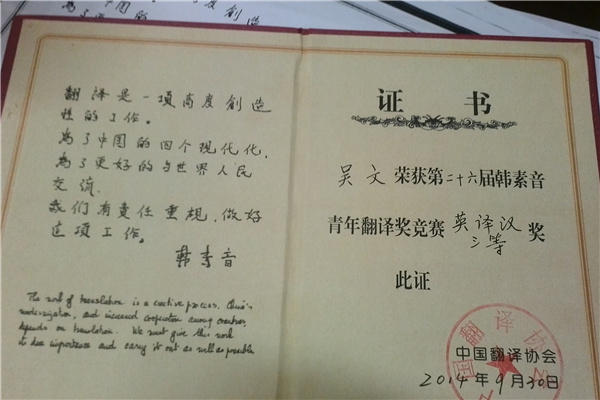 翻译是一項高度創造
性的工作。
為了中国的四个现代化,
為了更好的与世界人民
交流.
我们有責任重視,做好
这項工作。
韩素音
The work of translation is a creative process. China's
modernization, and increased cooperation among countries,
depends on translation. We must give this work
its due importance and carry it out as well as possible
证书
吴文荣获第二十六届韩素音
青年翻译奖竞赛英译汉
三等奖
此证
中国翻译协会
2014年9月20日